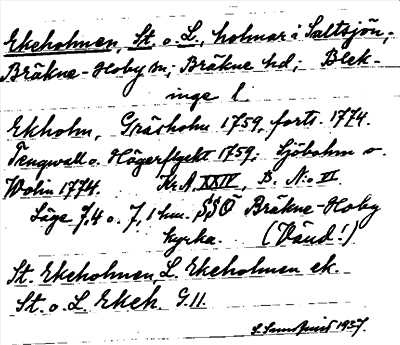 Ekeholmen, St. o. L., holmar i Saltsjön,
Bräkne-Hoby sn; Bräkne hd; Blek-
inge l.
Ekholm, Gräsholm 1759, forts. 1774.
Tengwall o. Hägerflycht 1759; Sjöbohm o.
Wolin 1774. Kr. A. XXIV, B. N:o VI
Läge 7,4 o. 7,1 km. SSO Bräkne-Hoby
kyrka. (Vänd!)
St. Ekeholmen, L. Ekeholmen ek.
St. o. L. Ekeh. G.11.
1937.